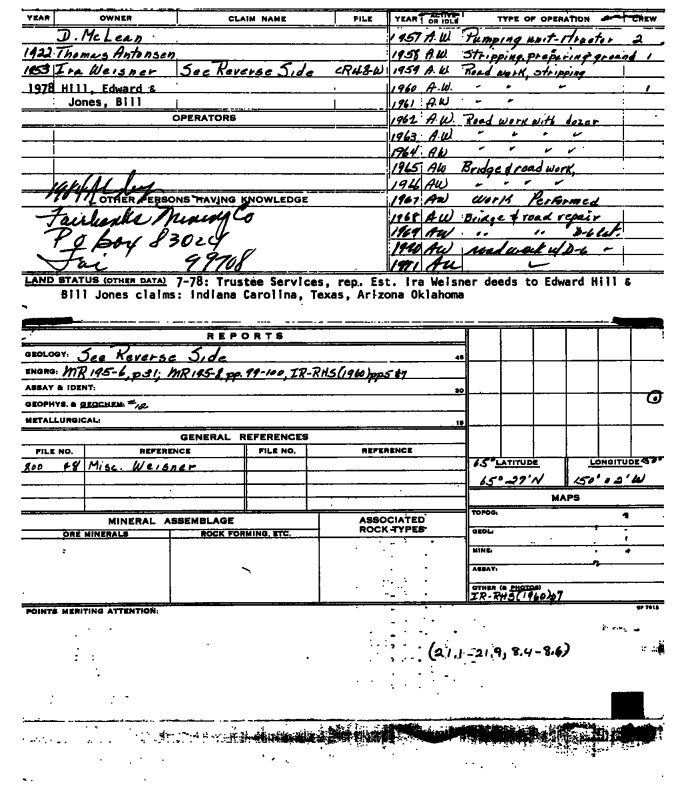 YEAR OWNER CLAIM NAME FILE YEAR ACTIVE OR IDLE TYPE OF OPERATION CREW
D. McLean 1957 A.W. Pumping unit-tractor 2
1922 Thomas Antonsen 1958 A.W. Stripping, preparing ground 1
1953 Ira Weisner See Reverse Side CR48-W 1959 A.W. Road work, stripping
1978 Hill, Edward & 1960 A.W. " " " 1
Jones, Bill 1961 A.W " "
OPERATORS 1962 A.W. Road work with dozer
1963 A.W. " " " "
1964 AW " " " "
1965 AW Bridge & road work,
1966 AW " " " "
OTHER PERSONS HAVING KNOWLEDGE 1967 AW Work Performed
Fairbanks Mining Co 1968 A.W Bridge & road repair
PO box 83024 1969 AW " " " D-6 Cat.
Fai 99708 1970 AW road work w/D-6
1971 AW
LAND STATUS (OTHER DATA) 7-78: Trustee Services, rep. Est. Ira Weisner deeds to Edward Hill &
Bill Jones claims: Indiana Carolina, Texas, Arizona Oklahoma
REPORTS
GEOLOGY: See Reverse Side
ENGRG: MR 195-6, p31; MR195-8, pp. 99-100, IR-RHS(1960)pp5&7
ASSAY & IDENT:
GEOPHYS. & GEOCHEM: #12
METALLURGICAL:
GENERAL REFERENCES
FILE NO. REFERENCE FILE NO. REFERENCE
800 48 Misc. Weisner
65° LATITUDE LONGITUDE 150°
65° 27'N 150° 02'W
MAPS
MINERAL ASSEMBLAGE ASSOCIATED ROCK TYPES
ORE MINERALS ROCK FORMING, ETC.
TOPOG:
GEOL:
MINE:
ASSAY:
OTHER (& PHOTOS)
IR-RHS(1960)p7
POINTS MERITING ATTENTION:
(21.1-21.9, 8.4-8.6)